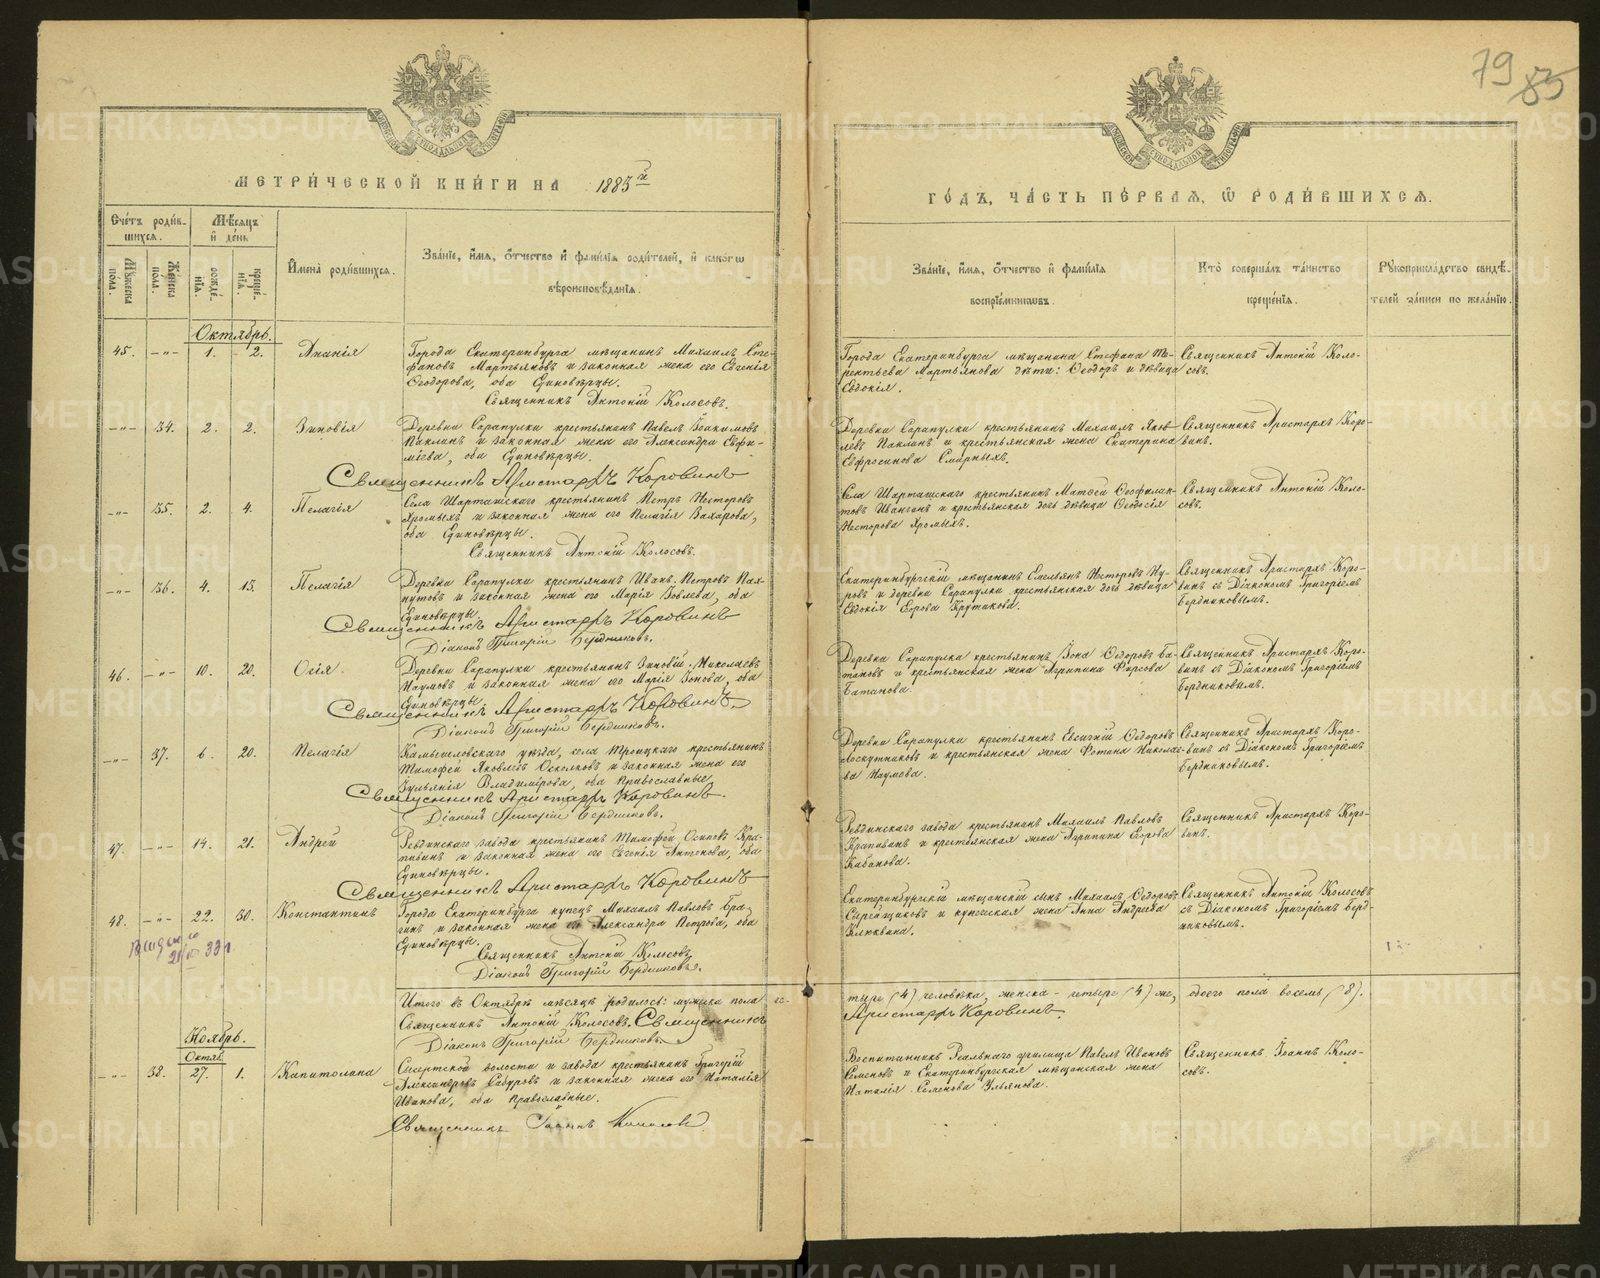 79 85
МЕТРИ́ЧЕСКОЙ КНИ́ГИ НА 1883й
ГО́ДЪ, ЧА́СТЬ ПЕ́РВАЯ, Ѿ РОДИ́ВШИХСЯ.
Сче́тъ роди́в-
шихся.
Му́жеска по́ла.
Же́нска по́ла.
Мѣ́сяцъ
и̑ де́нь
рожде́-
нїя.
креще́-
нїя.
И̑мена̀ роди́вшихся.
Зва́нїе, и̑́мя, о̑́тчество и̑ фами́лїя роди́телей, и̑ како́гѡ
вѣроисповѣ́данїя.
Зва́нїе, и̑́мя, о̑́тчество и̑ фами́лїя
воспрїе́мниковъ.
Кто̀ соверша́лъ та́инство
креще́нїя.
Рꙋкоприкла́дство свидѣ́-
телей за́писи по жела́нїю.
Октябрь.
45. —„— 1. 2. Ананія
Города Екатеринбурга мѣщанинъ Михаилъ Сте-
фановъ Мартьяновъ и законная жена его Евгенія
Ѳеодорова, оба Единовѣрцы.
Священникъ Антоній Колосовъ.
Города Екатеринбурга мѣщанина Стефана Те-
рентьева Мартьянова дѣти: Ѳеодоръ и дѣвица
Евдокія.
Священникъ Антоній Коло-
совъ.
—„— 34. 2. 2. Зиновія
Деревни Сарапулки крестьянинъ Павелъ Іоакимовъ
Паклинъ и законная жена его Александра Евфи-
міева, оба Единовѣрцы.
Священникъ Аристархъ Коровинъ
Деревни Сарапулки крестьянинъ Михаилъ Яков-
левъ Паклинъ и крестьянская жена Екатерина
Евфросинова Смирныхъ.
Священникъ Аристархъ Коро-
винъ.
—„— 35. 2. 4. Пелагія
Села Шарташскаго крестьянинъ Петръ Несторовъ
Хромыхъ и законная жена его Пелагія Захарова,
оба Единовѣрцы.
Священникъ Антоній Колосовъ.
Села Шарташскаго крестьянинъ Матѳей Ѳеофилак-
товъ и крестьянская дочь дѣвица Ѳеодосія
Несторова Хромыхъ.
Священникъ Антоній Коло-
совъ.
—„— 36. 4. 15. Пелагія
Деревни Сарапулки крестьянинъ Иванъ Петровъ Пах-
нутовъ и законная жена его Марія Іовлева, оба
Единовѣрцы.
Священникъ Аристархъ Коровинъ
Діаконъ Григорій Бердниковъ.
Екатеринбургскій мѣщанинъ Емельянъ Несторовъ Ну-
ровъ и деревни Сарапулки крестьянская дочь дѣвица
Евдокія Егорова Крутикова.
Священникъ Аристархъ Коро-
винъ съ Діакономъ Григоріемъ
Бердниковымъ.
46. —„— 10. 20. Осія.
Деревни Сарапулки крестьянинъ Зиновій Николаевъ
Наумовъ и законная жена его Марія Іонова, оба
Единовѣрцы.
Священникъ Аристархъ Коровинъ
Діаконъ Григорій Бердниковъ.
Деревни Сарапулки крестьянинъ Іона Ѳедоровъ Ба-
тановъ и крестьянская жена Агрипина Фирсова
Батанова.
Священникъ Аристархъ Коро-
винъ съ Діакономъ Григоріемъ
Бердниковымъ.
—„— 37. 6. 20. Пелагія
Камышловскаго уѣзда, села Троицкаго крестьянинъ
Тимофей Яковлевъ Осколковъ и законная жена его
Іульянія Владимірова, оба православные.
Священникъ Аристархъ Коровинъ.
Діаконъ Григорій Бердниковъ.
Деревни Сарапулки крестьянинъ Евсигній Ѳедоровъ
Лоскутниковъ и крестьянская жена Фотина Николае-
ва Наумова.
Священникъ Аристархъ Коро-
винъ съ Діакономъ Григоріемъ
Бердниковымъ.
47. —„— 14. 21. Андрей
Ревдинскаго завода крестьянинъ Тимофей Осиповъ Кра-
пивинъ и законная жена его Евгенія Антонова, оба
Единовѣрцы.
Священникъ Аристархъ Коровинъ
Ревдинскаго завода крестьянинъ Михаилъ Павловъ
Крапивинъ и крестьянская жена Агрипина Егорова
Кабанова.
Священникъ Аристархъ Коро-
винъ.
48. —„— 22. 30. Константинъ
Города Екатеринбурга купецъ Михаилъ Павловъ Бра-
гинъ и законная жена его Александра Петрова, оба
Единовѣрцы.
Священникъ Антоній Колосовъ
Діаконъ Григорій Бердниковъ.
Екатеринбургскій мѣщанскій сынъ Михаилъ Ѳедоровъ
и купеческая жена Анна Андреева
Клюквина.
Священникъ Антоній Колосовъ
съ Діакономъ Григоріемъ Берд-
никовымъ.
33 г.
Итого въ Октябрѣ мѣсяцѣ родилось: мужска пола че-
тыре (4) человѣка, женска - четыре (4) же, обоего пола восемь (8).
Священникъ Антоній Колосовъ. Священникъ
Аристархъ Коровинъ.
Діаконъ Григорій Бердниковъ.
Ноябрь.
Октяб.
—„— 38. 27. 1. Капитолина
Сысертской волости и завода крестьянинъ Григорій
Александровъ и законная жена его Наталія
Иванова, оба православные.
Священникъ Іоаннъ Колосовъ
Воспитанникъ Реальнаго училища Павелъ Ивановъ
Семеновъ и Екатеринбургская мѣщанская жена
Наталія Семенова Ульянова.
Священникъ Іоаннъ Коло-
совъ.
METRIKI.GASO-URAL.RU